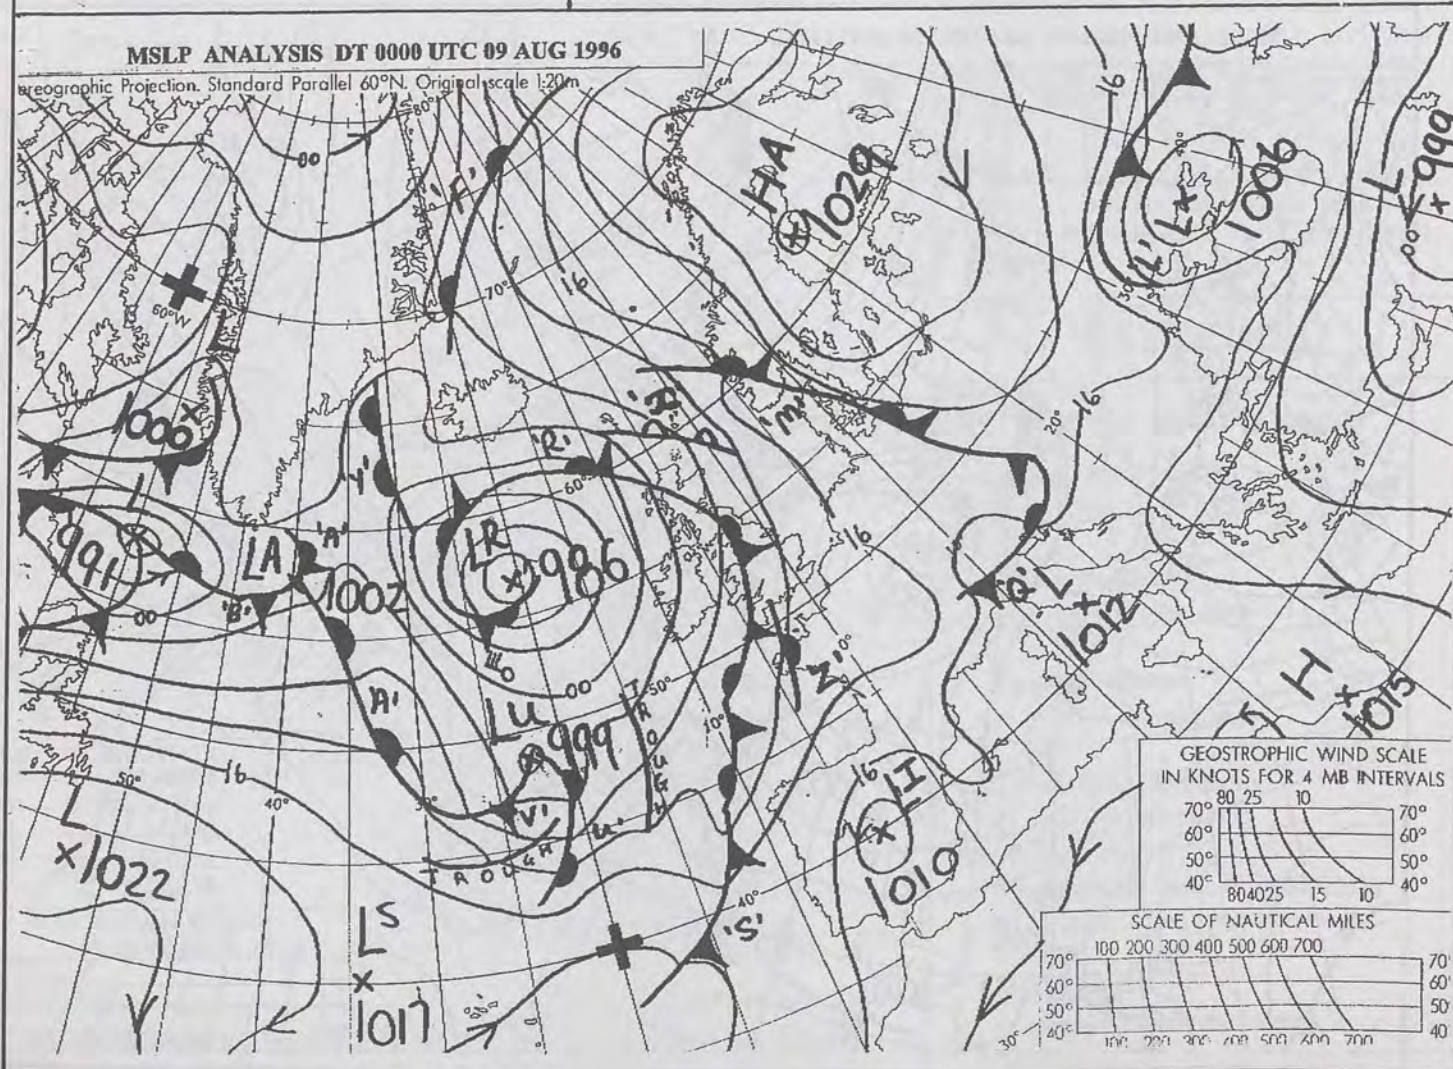 MSLP ANALYSIS DT 0000 UTC 09 AUG 1996
ereographic Projection. Standard Parallel 60°N. Original scale 1:20m
80°
00
'F'
HA
1029
16
16
L
1006
'L'
L
999
00
60°W
70°
16
L
1006
'M'
20°
16
'R'
60°
'Y'
L
991
LA
'A'
1002
'B'
00
LR
986
16
'Q'
L
1012
10°
'W'
00
50°
TROUGH
LU
999
10°
'A'
'V'
'U'
TROUGH
H
1015
16
LI
1010
16
50°
40°
30°
L
1022
LS
1017
40°
'S'
30°
GEOSTROPHIC WIND SCALE
IN KNOTS FOR 4 MB INTERVALS
80 25 10
70° 70°
60° 60°
50° 50°
40° 40°
80 40 25 15 10
SCALE OF NAUTICAL MILES
100 200 300 400 500 600 700
70° 70°
60° 60°
50° 50°
40° 40
100 200 300 400 500 600 700